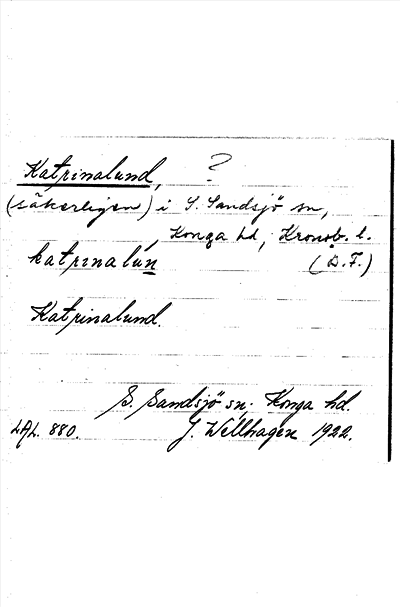 Katrinalund, ?
(säkerligen) i S. Sandsjö sn,
Konga hd, Kronob. l.
katrinalún (D.F.)
Katrinalund.
S. Sandsjö sn, Konga hd.
LAL. 880. J. Wellhagen 1922.